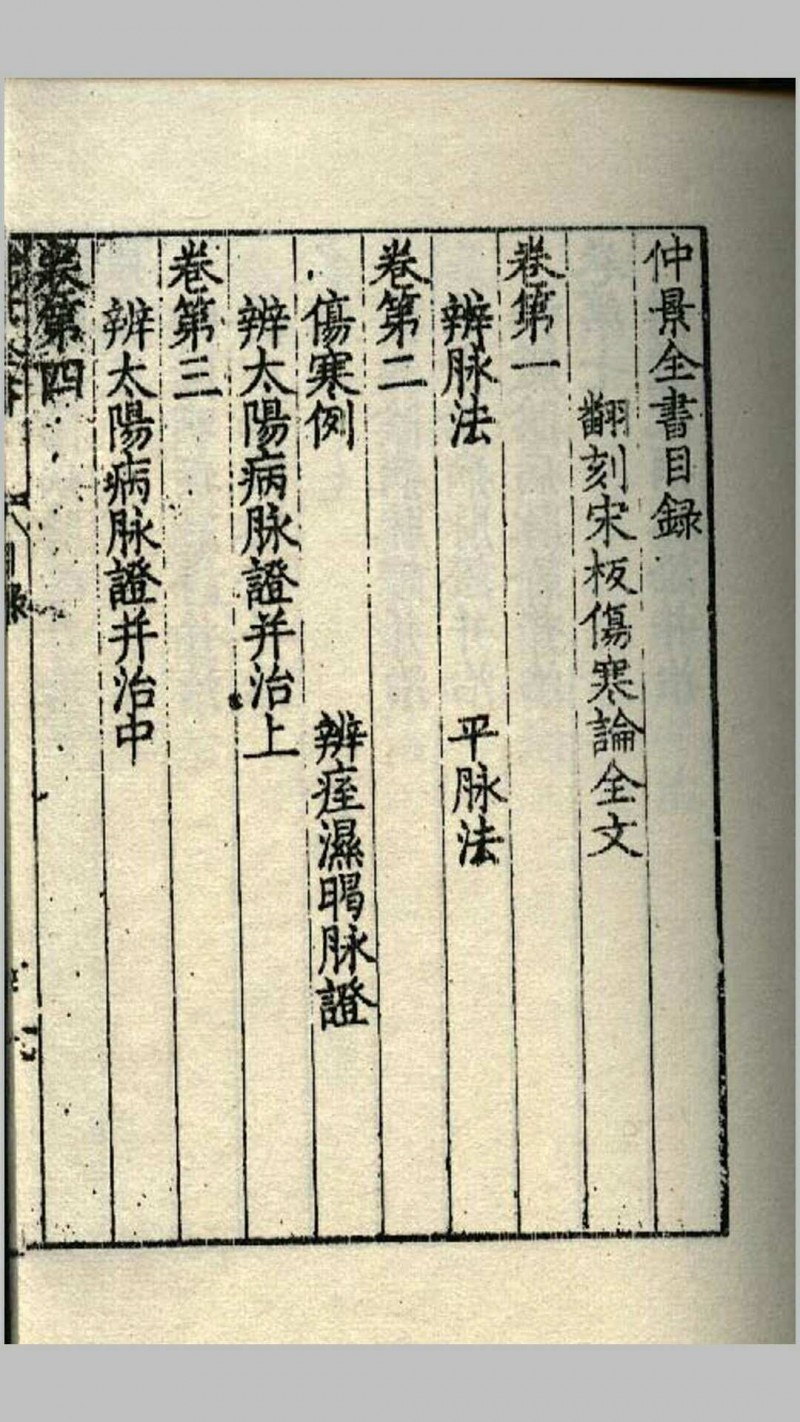 仲景全書目録
翻刻宋板傷寒論全文
卷第一
辨脉法 平脉法
卷第二
傷寒例 辨痓濕暍脉證
辨太陽病脉證并治上
卷第三
辨太陽病脉證并治中
卷第四